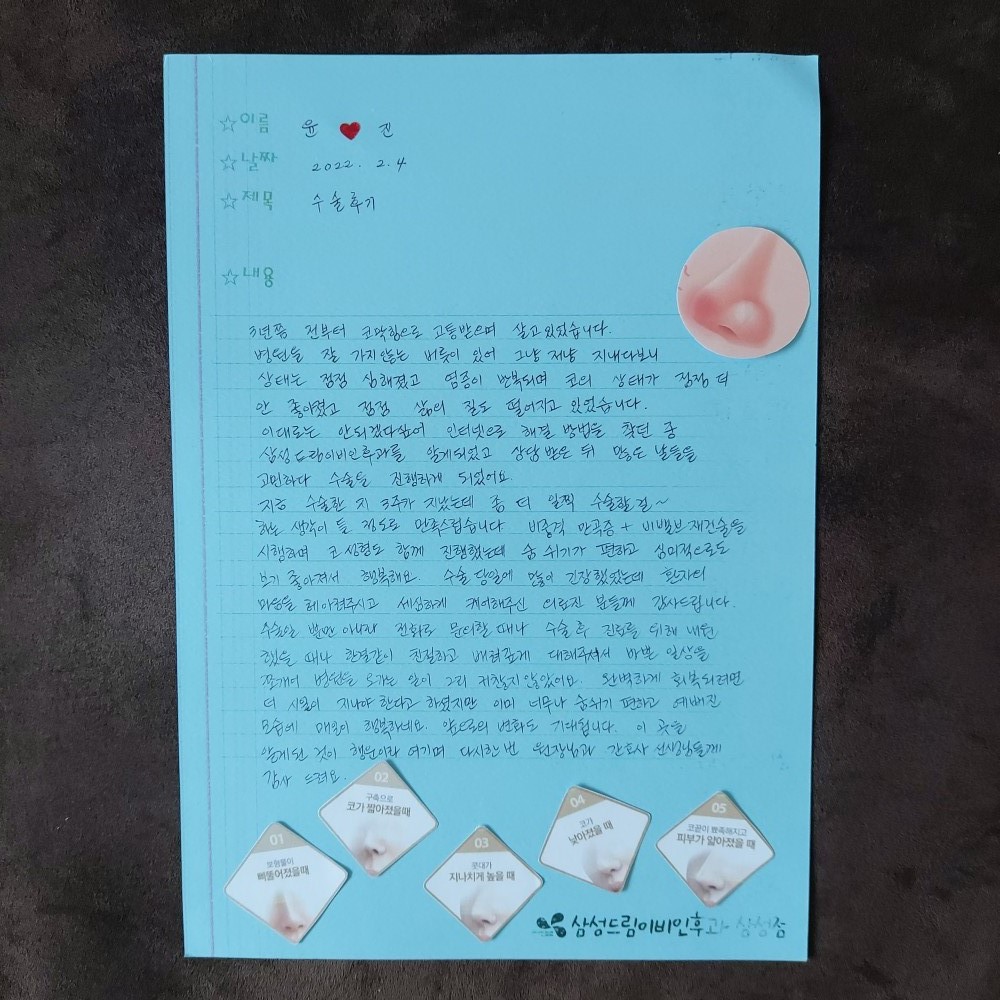 ☆이름 윤 ♥ 진
☆날짜 2022. 2. 4
☆제목 수술후기
☆내용
3년쯤 전부터 코막힘으로 고통받으며 살고있었습니다.
병원을 잘 가지않는 버릇이 있어 그냥 저냥 지내다보니
상태는 점점 심해졌고 염증이 반복되며 코의 상태가 점점 더
안 좋아졌고 점점 삶의 질도 떨어지고 있었습니다.
이대로는 안되겠다싶어 인터넷으로 해결 방법을 찾던 중
삼성드림이비인후과를 알게되었고 상담 받은 뒤 많은 날들을
고민하다 수술을 진행하게 되었어요.
지금 수술한 지 3주가 지났는데 좀 더 일찍 수술할걸~
하는 생각이 들 정도로 만족스럽습니다. 비중격 만곡증 + 비밸브 재건술을
시행하며 코 성형도 함께 진행했는데 숨 쉬기가 편하고 심미적으로도
보기 좋아져서 행복해요. 수술 당일에 많이 긴장했었는데 환자의
마음을 헤아려주시고 세심하게 케어해주신 의료진 분들께 감사드립니다.
수술일 뿐만 아니라 전화로 문의할 때나 수술 후 진료를 위해 내원
했을 때나 한결같이 친절하고 배려깊게 대해주셔서 바쁜 일상을
쪼개어 병원을 오가는 일이 그리 귀찮지않았어요. 완벽하게 회복되려면
더 시일이 지나야 한다고 하셨지만 이미 너무나 숨쉬기 편하고 예뻐진
모습에 매일이 행복하네요. 앞으로의 변화도 기대됩니다. 이 곳을
알게된 것이 행운이라 여기며 다시한 번 원장님과 간호사 선생님들께
감사 드려요.
01
보형물이
삐뚤어졌을때
02
구축으로
코가 짧아졌을때
03
콧대가
지나치게 높을 때
04
코가
낮아졌을 때
05
코끝이 뾰족해지고
피부가 얇아졌을 때
삼성드림이비인후과 삼성점